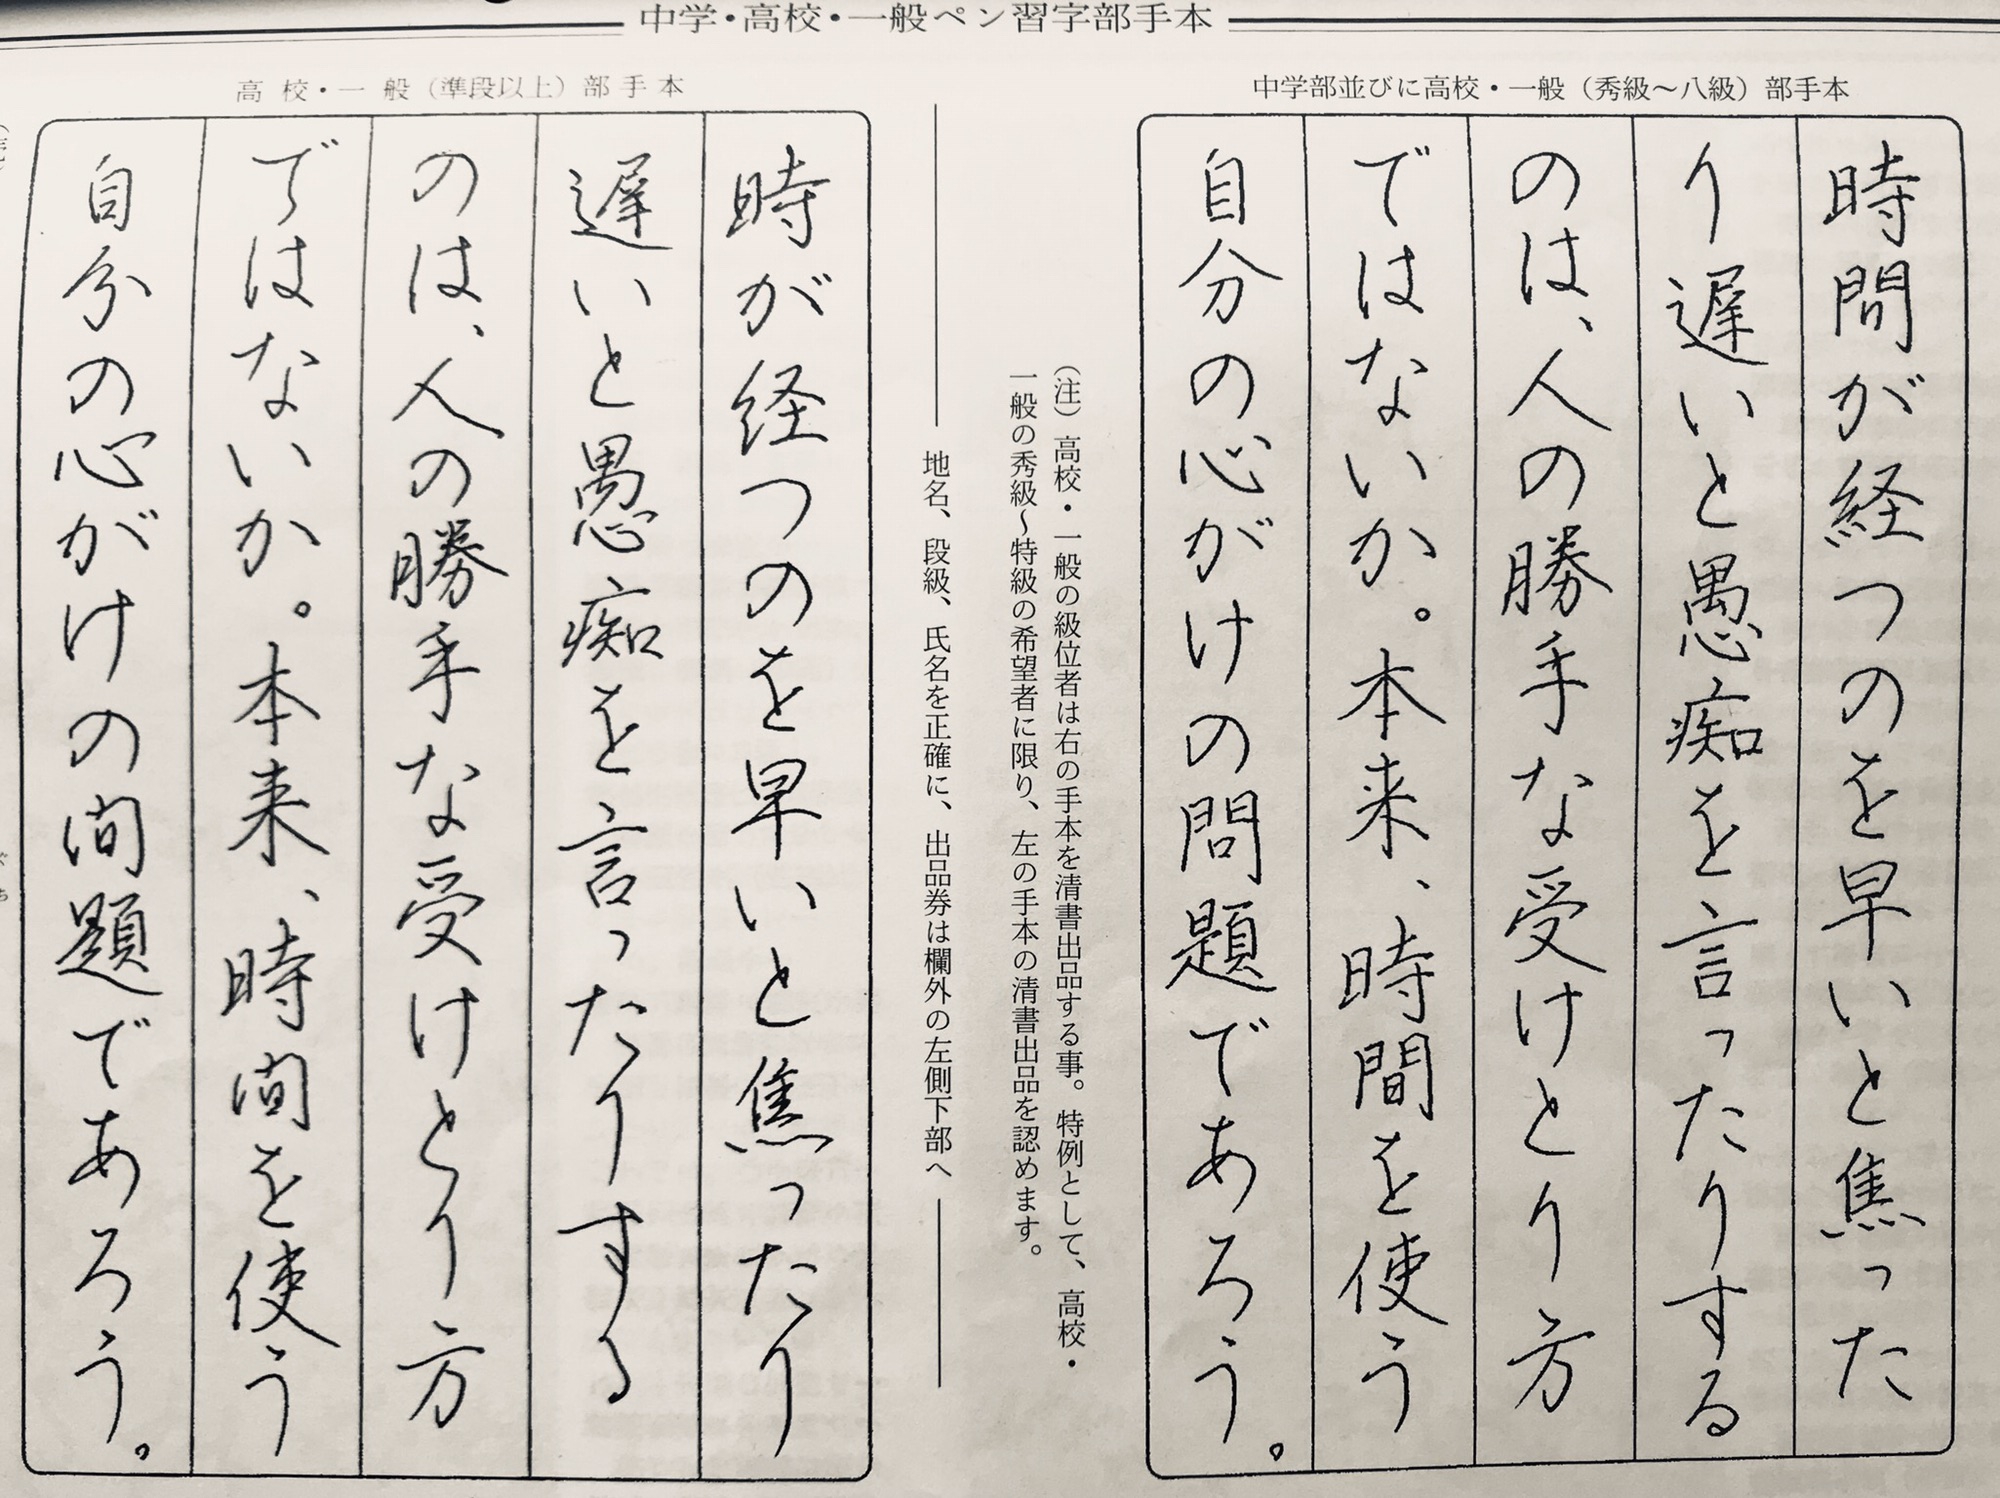 中学・高校・一般ペン習字部手本
中学部並びに高校・一般（秀級～八級）部手本
時間が経つのを早いと焦った
り遅いと愚痴を言ったりする
のは、人の勝手な受けとり方
ではないか。本来、時間を使う
自分の心がけの問題であろう。
（注）高校・一般の級位者は右の手本を清書出品する事。特例として、高校・
一般の秀級～特級の希望者に限り、左の手本の清書出品を認めます。
地名、段級、氏名を正確に、出品券は欄外の左側下部へ
高校・一般（準段以上）部手本
時が経つのを早いと焦ったり
遅いと愚痴を言ったりする
のは、人の勝手な受けとり方
ではないか。本来、時間を使う
自分の心がけの問題であろう。